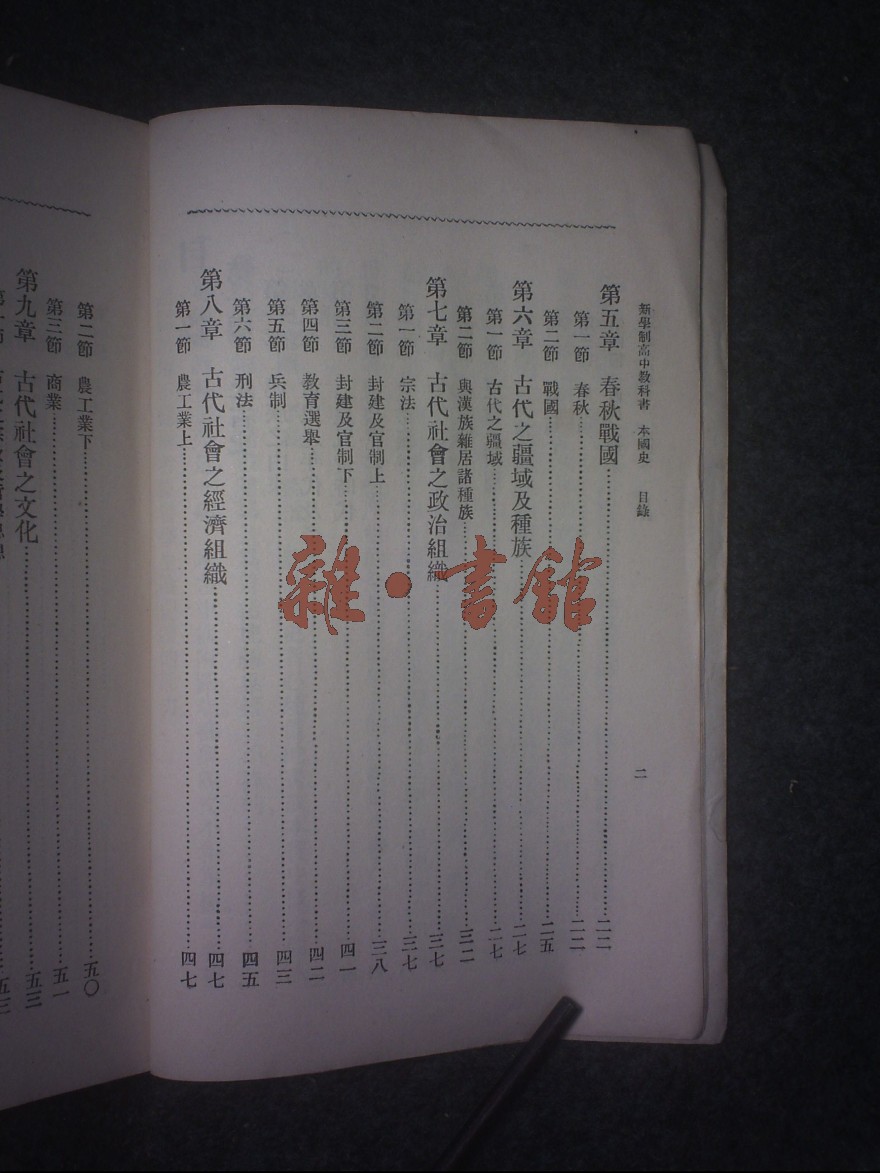 新學制高中教科書 本國史 目錄 二
第五章 春秋戰國……二二
第一節 春秋……二二
第二節 戰國……二五
第六章 古代之疆域及種族……二七
第一節 古代之疆域……二七
第二節 與漢族雜居諸種族……三二
第七章 古代社會之政治組織……三七
第一節 宗法……三七
第二節 封建及官制上……三八
第三節 封建及官制下……四一
第四節 教育選舉……四二
第五節 兵制……四三
第六節 刑法……四五
第八章 古代社會之經濟組織……四七
第一節 農工業上……四七
第二節 農工業下……五〇
第三節 商業……五一
第九章 古代社會之文化……五三
雜·書館